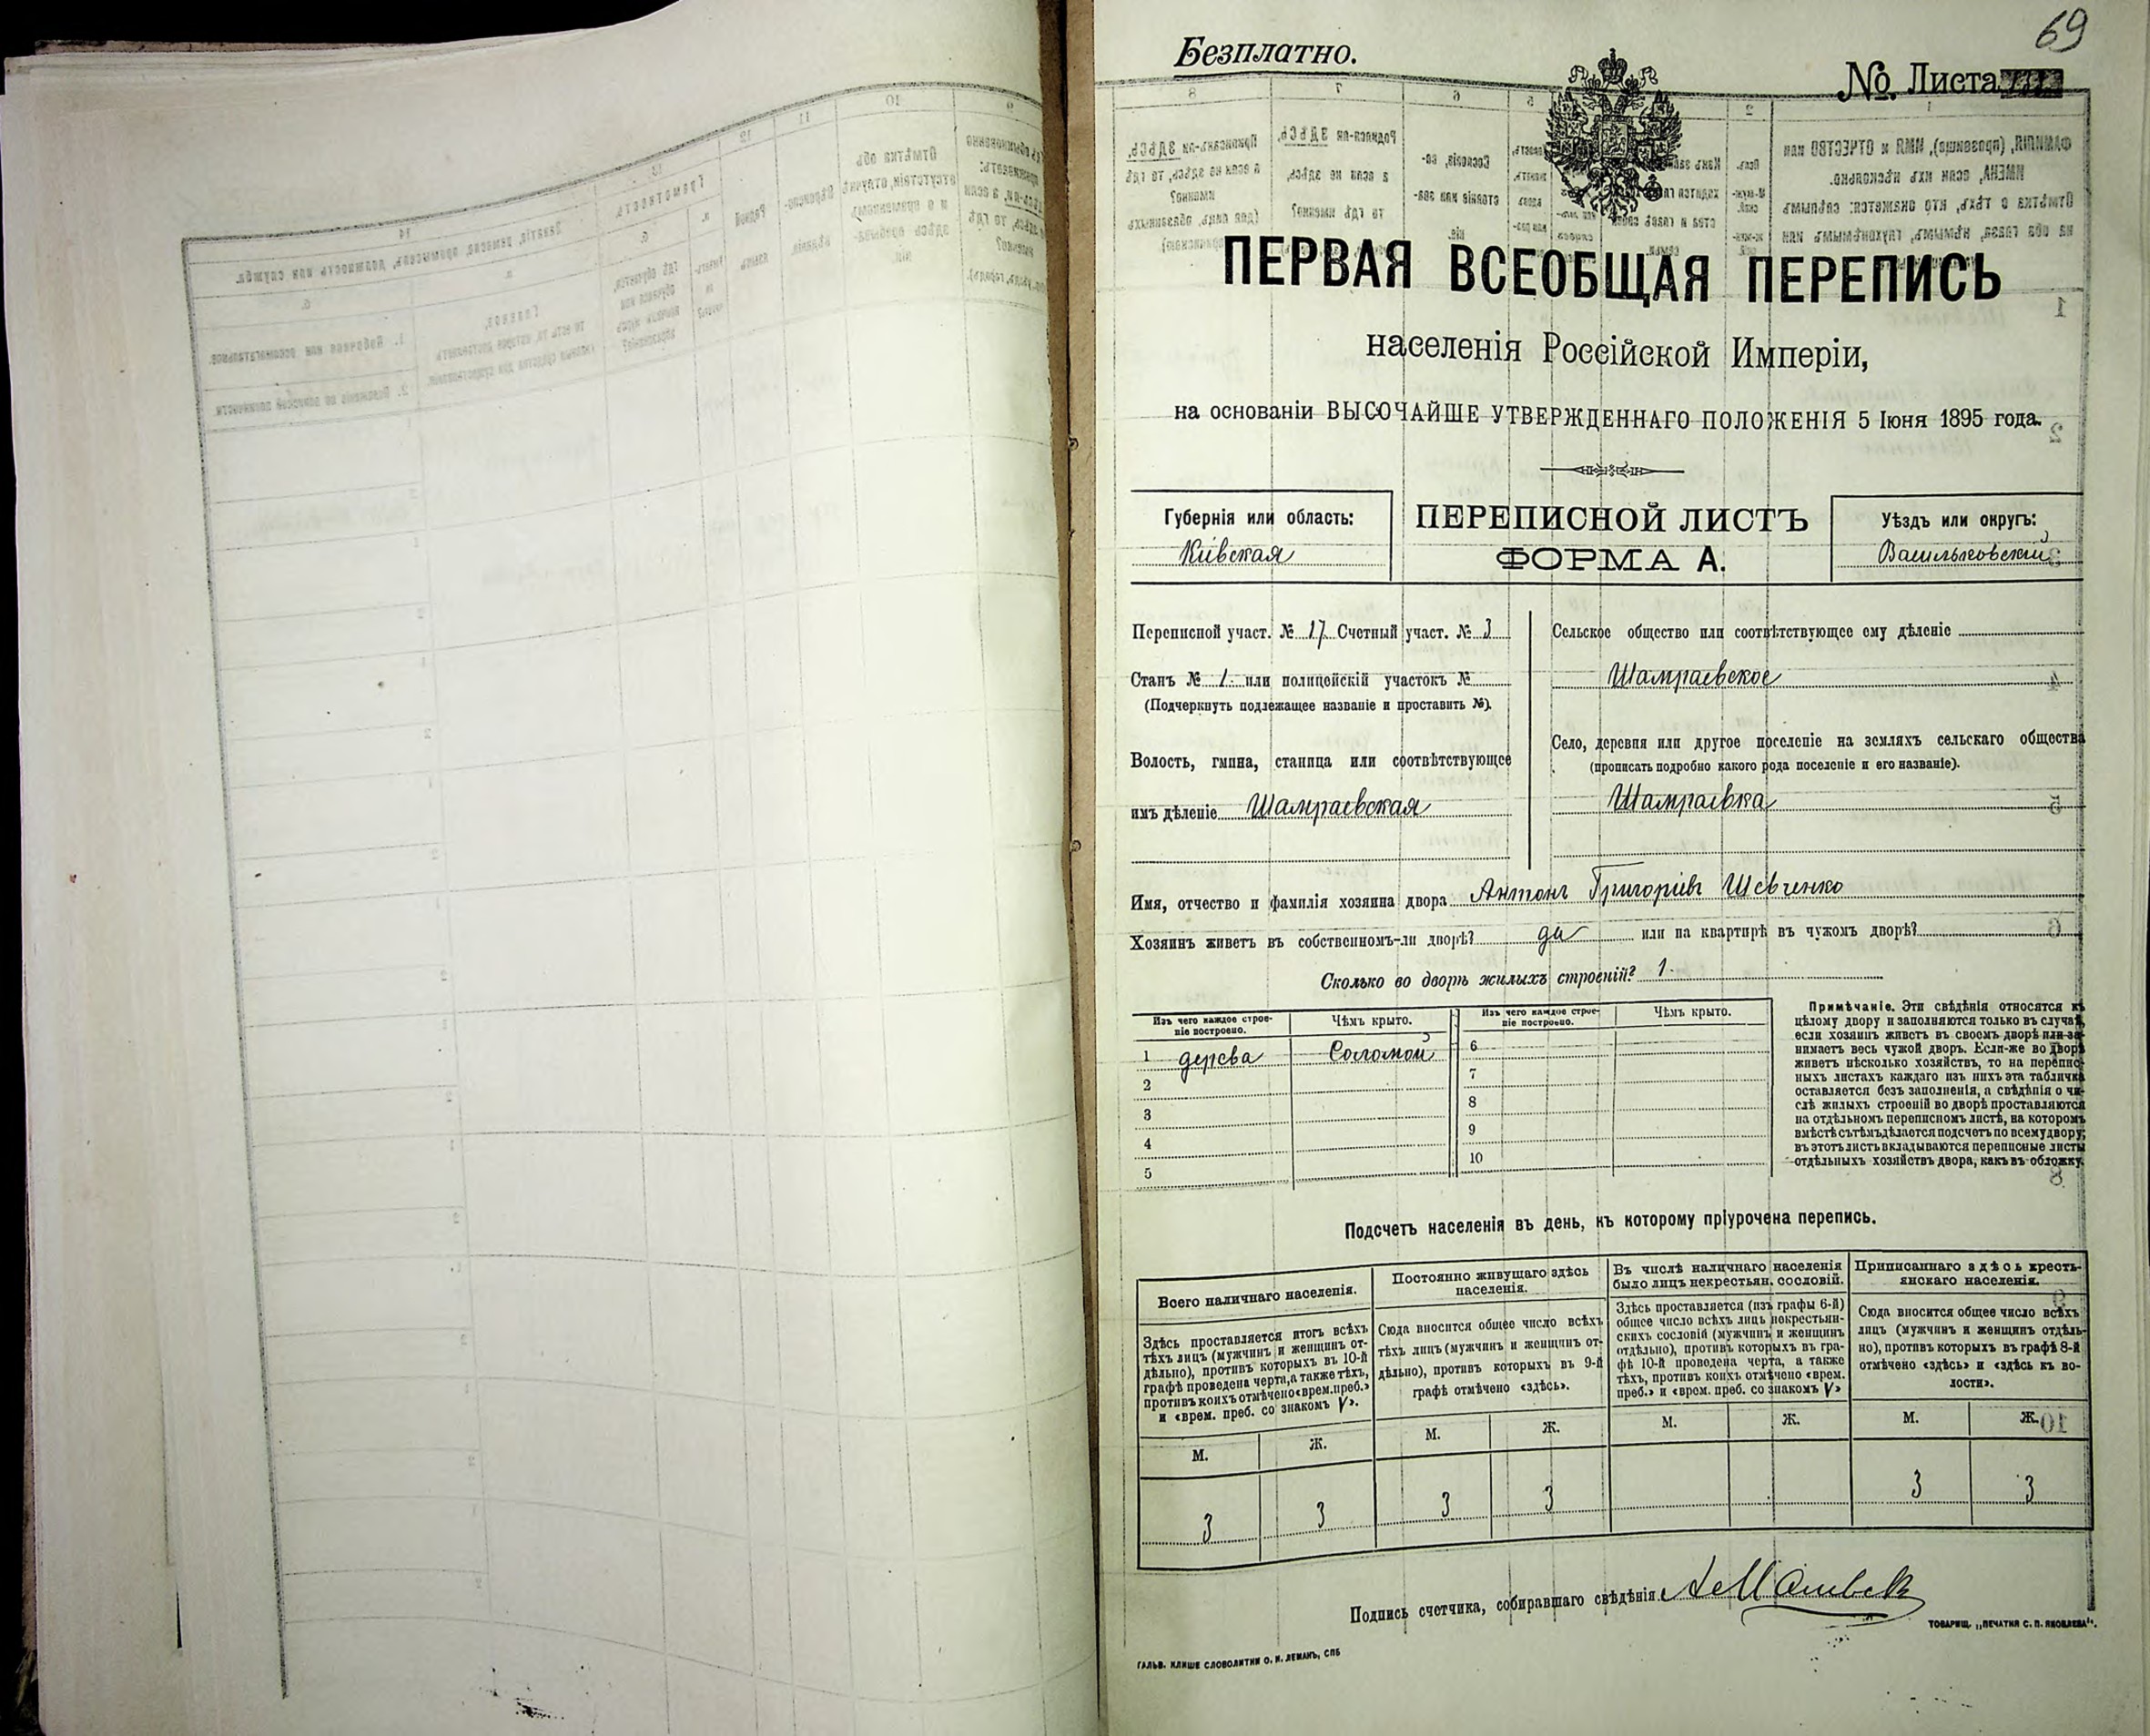 69
Безплатно.
№ Листа
ПЕРВАЯ ВСЕОБЩАЯ ПЕРЕПИСЬ
населенія Россійской Имперіи,
на основаніи ВЫСОЧАЙШЕ УТВЕРЖДЕННАГО ПОЛОЖЕНІЯ 5 Іюня 1895 года.
Губернія или область:
Кіевская
ПЕРЕПИСНОЙ ЛИСТЪ
ФОРМА А.
Уѣздъ или округъ:
Васильковскій
Переписной участ. № 17 Счетный участ. № 3
Станъ № 1. или полицейскій участокъ №
(Подчеркнуть подлежащее названіе и проставить №).
Волость, гмина, станица или соотвѣтствующее
имъ дѣленіе Шамраевская
Сельское общество или соотвѣтствующее ему дѣленіе
Шамраевское
Село, деревня или другое поселеніе на земляхъ сельскаго общества
(прописать подробно какого рода поселеніе и его названіе).
Шамраевка
Имя, отчество и фамилія хозяина двора Антонъ Григоріевъ Шевченко
Хозяинъ живетъ въ собственномъ-ли дворѣ? да или на квартирѣ въ чужомъ дворѣ?
Сколько во дворѣ жилыхъ строеній? 1.
Изъ чего каждое строе-
ніе построено.
Чѣмъ крыто.
Изъ чего каждое строе-
ніе построено.
Чѣмъ крыто.
1 дерева Соломой 6
2 7
3 8
4 9
5 10
Примѣчаніе. Эти свѣдѣнія относятся къ
цѣлому двору и заполняются только въ случаѣ,
если хозяинъ живетъ въ своемъ дворѣ или за-
нимаетъ весь чужой дворъ. Если-же во дворѣ
живетъ нѣсколько хозяйствъ, то на перепис-
ныхъ листахъ каждаго изъ нихъ эта табличка
оставляется безъ заполненія, а свѣдѣнія о чи-
слѣ жилыхъ строеній во дворѣ проставляются
на отдѣльномъ переписномъ листѣ, на которомъ
вмѣстѣ съ тѣмъ дѣлается подсчетъ по всему двору;
въ этотъ листъ вкладываются переписные листы
отдѣльныхъ хозяйствъ двора, какъ въ обложку.
Подсчетъ населенія въ день, къ которому пріурочена перепись.
Всего наличнаго населенія.
Здѣсь проставляется итогъ всѣхъ
тѣхъ лицъ (мужчинъ и женщинъ от-
дѣльно), противъ которыхъ въ 10-й
графѣ проведена черта, а также тѣхъ,
противъ коихъ отмѣчено «врем. преб.»
и «врем. преб. со знакомъ V».
М. Ж.
3 3
Постоянно живущаго здѣсь
населенія.
Сюда вносится общее число всѣхъ
тѣхъ лицъ (мужчинъ и женщинъ от-
дѣльно), противъ которыхъ въ 9-й
графѣ отмѣчено «здѣсь».
М. Ж.
3 3
Въ числѣ наличнаго населенія
было лицъ некрестьян. сословій.
Здѣсь проставляется (изъ графы 6-й)
общее число всѣхъ лицъ некрестьян-
скихъ сословій (мужчинъ и женщинъ
отдѣльно), противъ которыхъ въ гра-
фѣ 10-й проведена черта, а также
тѣхъ, противъ коихъ отмѣчено «врем.
преб.» и «врем. преб. со знакомъ V»
М. Ж.
Приписаннаго здѣсь кресть-
янскаго населенія.
Сюда вносится общее число всѣхъ
лицъ (мужчинъ и женщинъ отдѣль-
но), противъ которыхъ въ графѣ 8-й
отмѣчено «здѣсь» и «здѣсь къ во-
лости».
М. Ж.
3 3
Подпись счетчика, собиравшаго свѣдѣнія
ТОВАРИЩ. „ПЕЧАТНЯ С. П. ЯКОВЛЕВА".
ГАЛЬВ. КЛИШЕ СЛОВОЛИТНИ О. И. ЛЕМАНЪ, СПБ